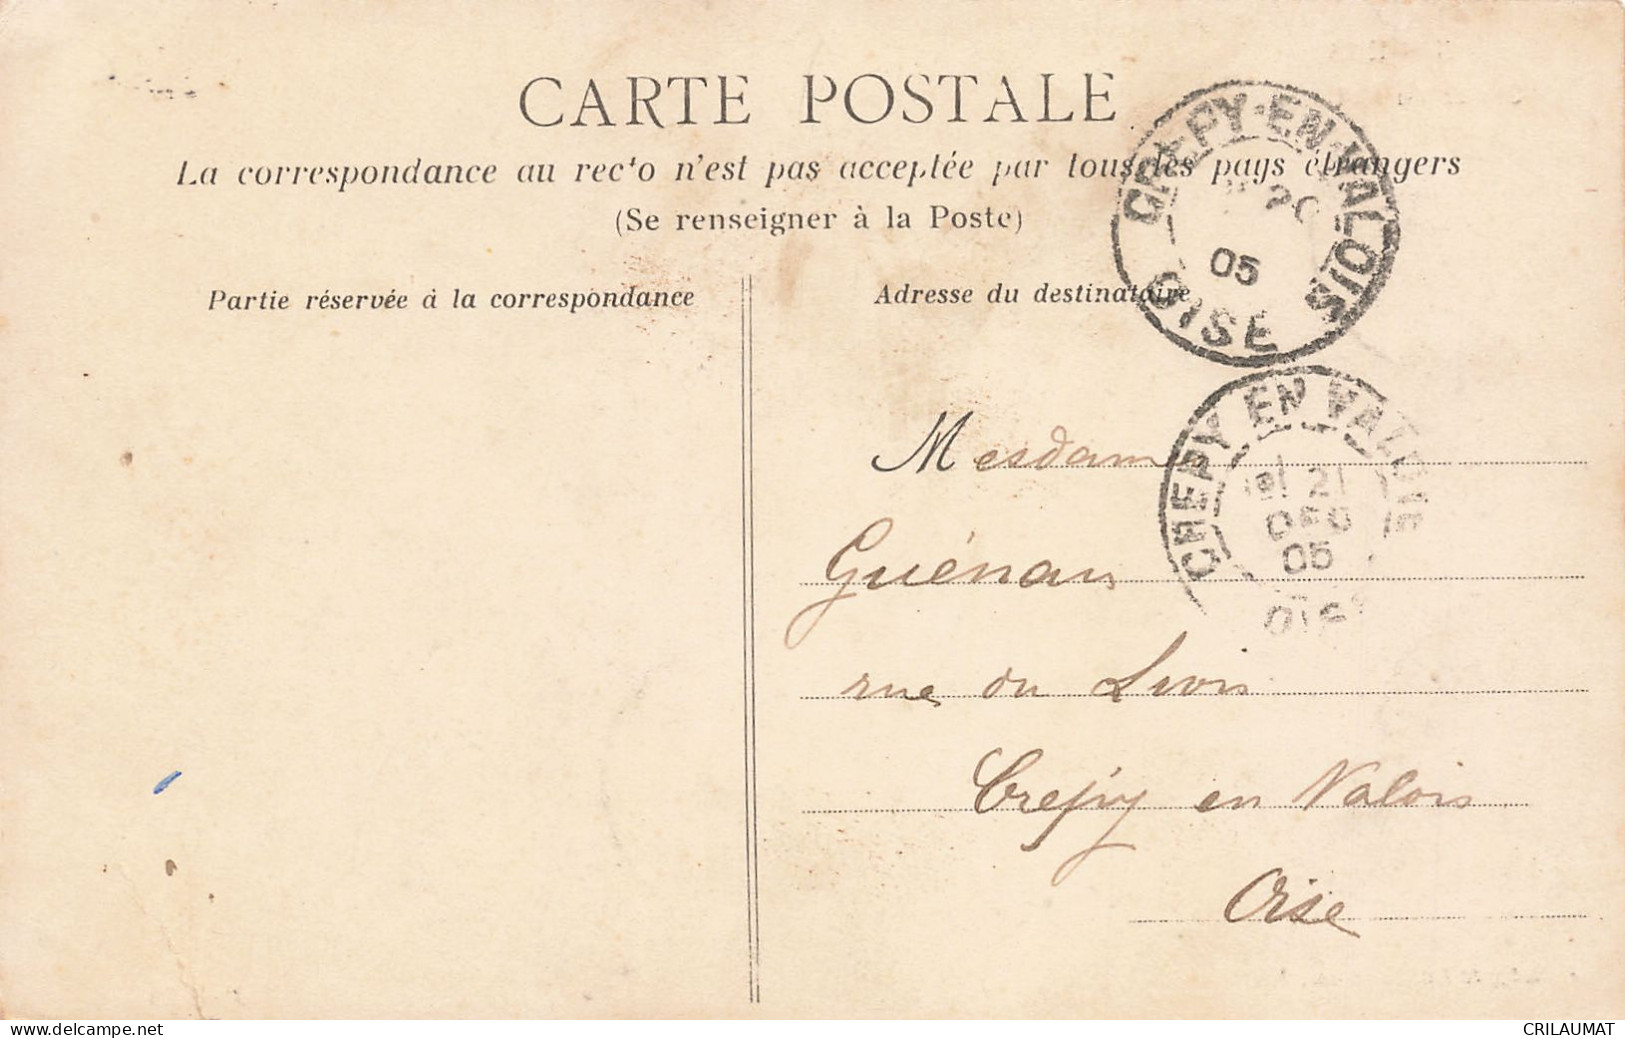 CARTE POSTALE
La correspondance au recto n'est pas acceptée par tous les pays étrangers
(Se renseigner à la Poste)
Partie réservée à la correspondance
Adresse du destinataire
CRÉPY-EN-VALOIS
20
05
OISE
CREPY EN VALOIS
21
DEC
05
OISE
Mesdames
Guénan
rue du
Crépy en Valois
Oise
www.delcampe.net
CRILAUMAT